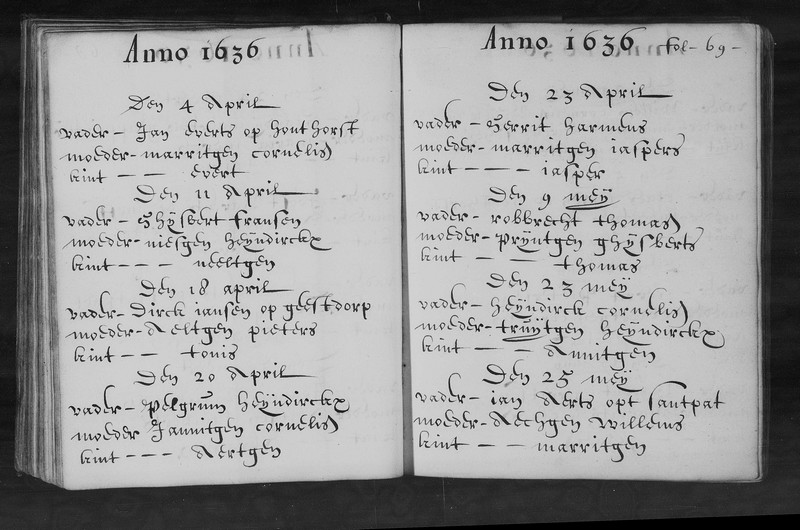 Anno 1636
Den 4 April
vader - Jan everts op hont horst
moeder - marritgen cornelis
kint - - - evert
Den 11 April
vader - Ghysbert fransen
moeder - niesgen heyndirckx
kint - - - neeltgen
Den 18 april
vader - Dirck iansen op geestdorp
moeder - Aeltgen pieters
kint - - - tonis
Den 20 April
vader - Pelgrum heyndirckx
moeder Jannitgen cornelis
kint - - - Aertgen
Anno 1636 fol - 69 -
Den 23 April
vader - Gerrit harmens
moeder - marritgen iaspers
kint - - - iasper
Den 9 mey
vader - robbrecht thomas
moeder - Pryntgen ghysberts
kint - - - thomas
Den 23 mey
vader - heyndirck cornelis
moeder - truytgen heyndirckx
kint - - - Annitgen
Den 25 mey
vader - ian Aerts opt santpat
moeder - Aechgen willems
kint - - - marritgen